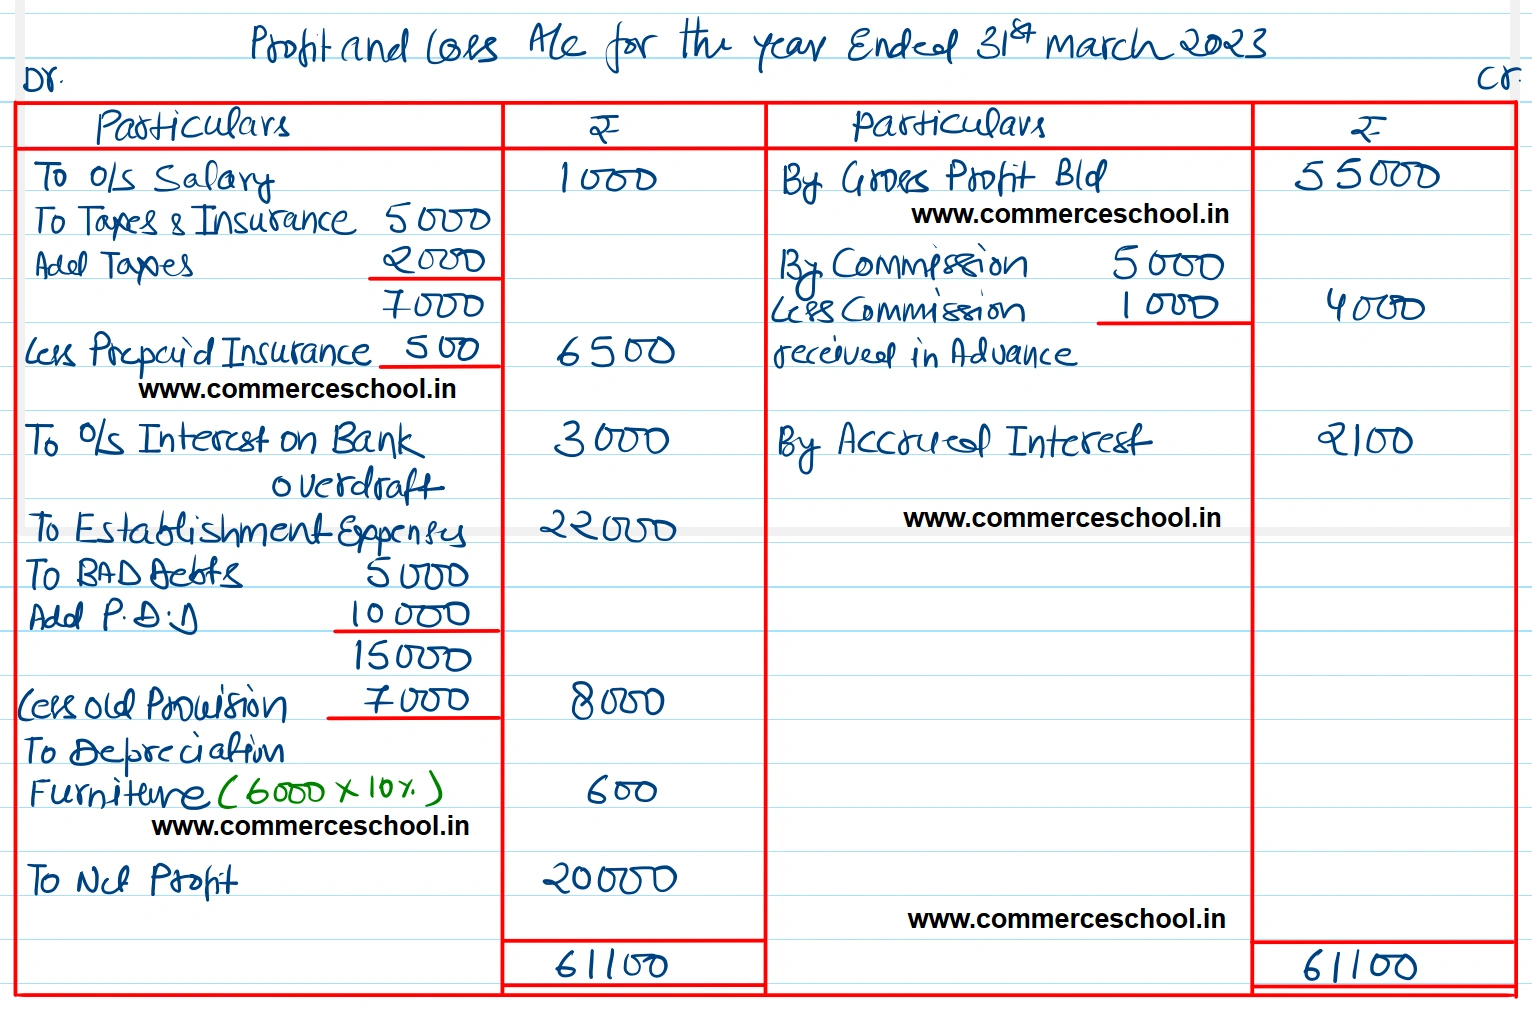 Profit and Loss A/c for the year Ended 31st March 2023
Dr. Cr.
Particulars ₹ Particulars ₹
To O/s Salary 1000 By Gross Profit B/d 55000
To Taxes & Insurance 5000 www.commerceschool.in
Add Taxes 2000 By Commission 5000
7000 Less Commission 1000 4000
Less Prepaid Insurance 500 6500 received in Advance
www.commerceschool.in
To O/s Interest on Bank 3000 By Accrued Interest 2100
overdraft
To Establishment Expenses 22000 www.commerceschool.in
To BAD Debts 5000
Add P.D.D 10000
15000
Less old Provision 7000 8000
To Depreciation
Furniture (6000 × 10%.) 600
www.commerceschool.in
To Net Profit 20000
www.commerceschool.in
61100 61100